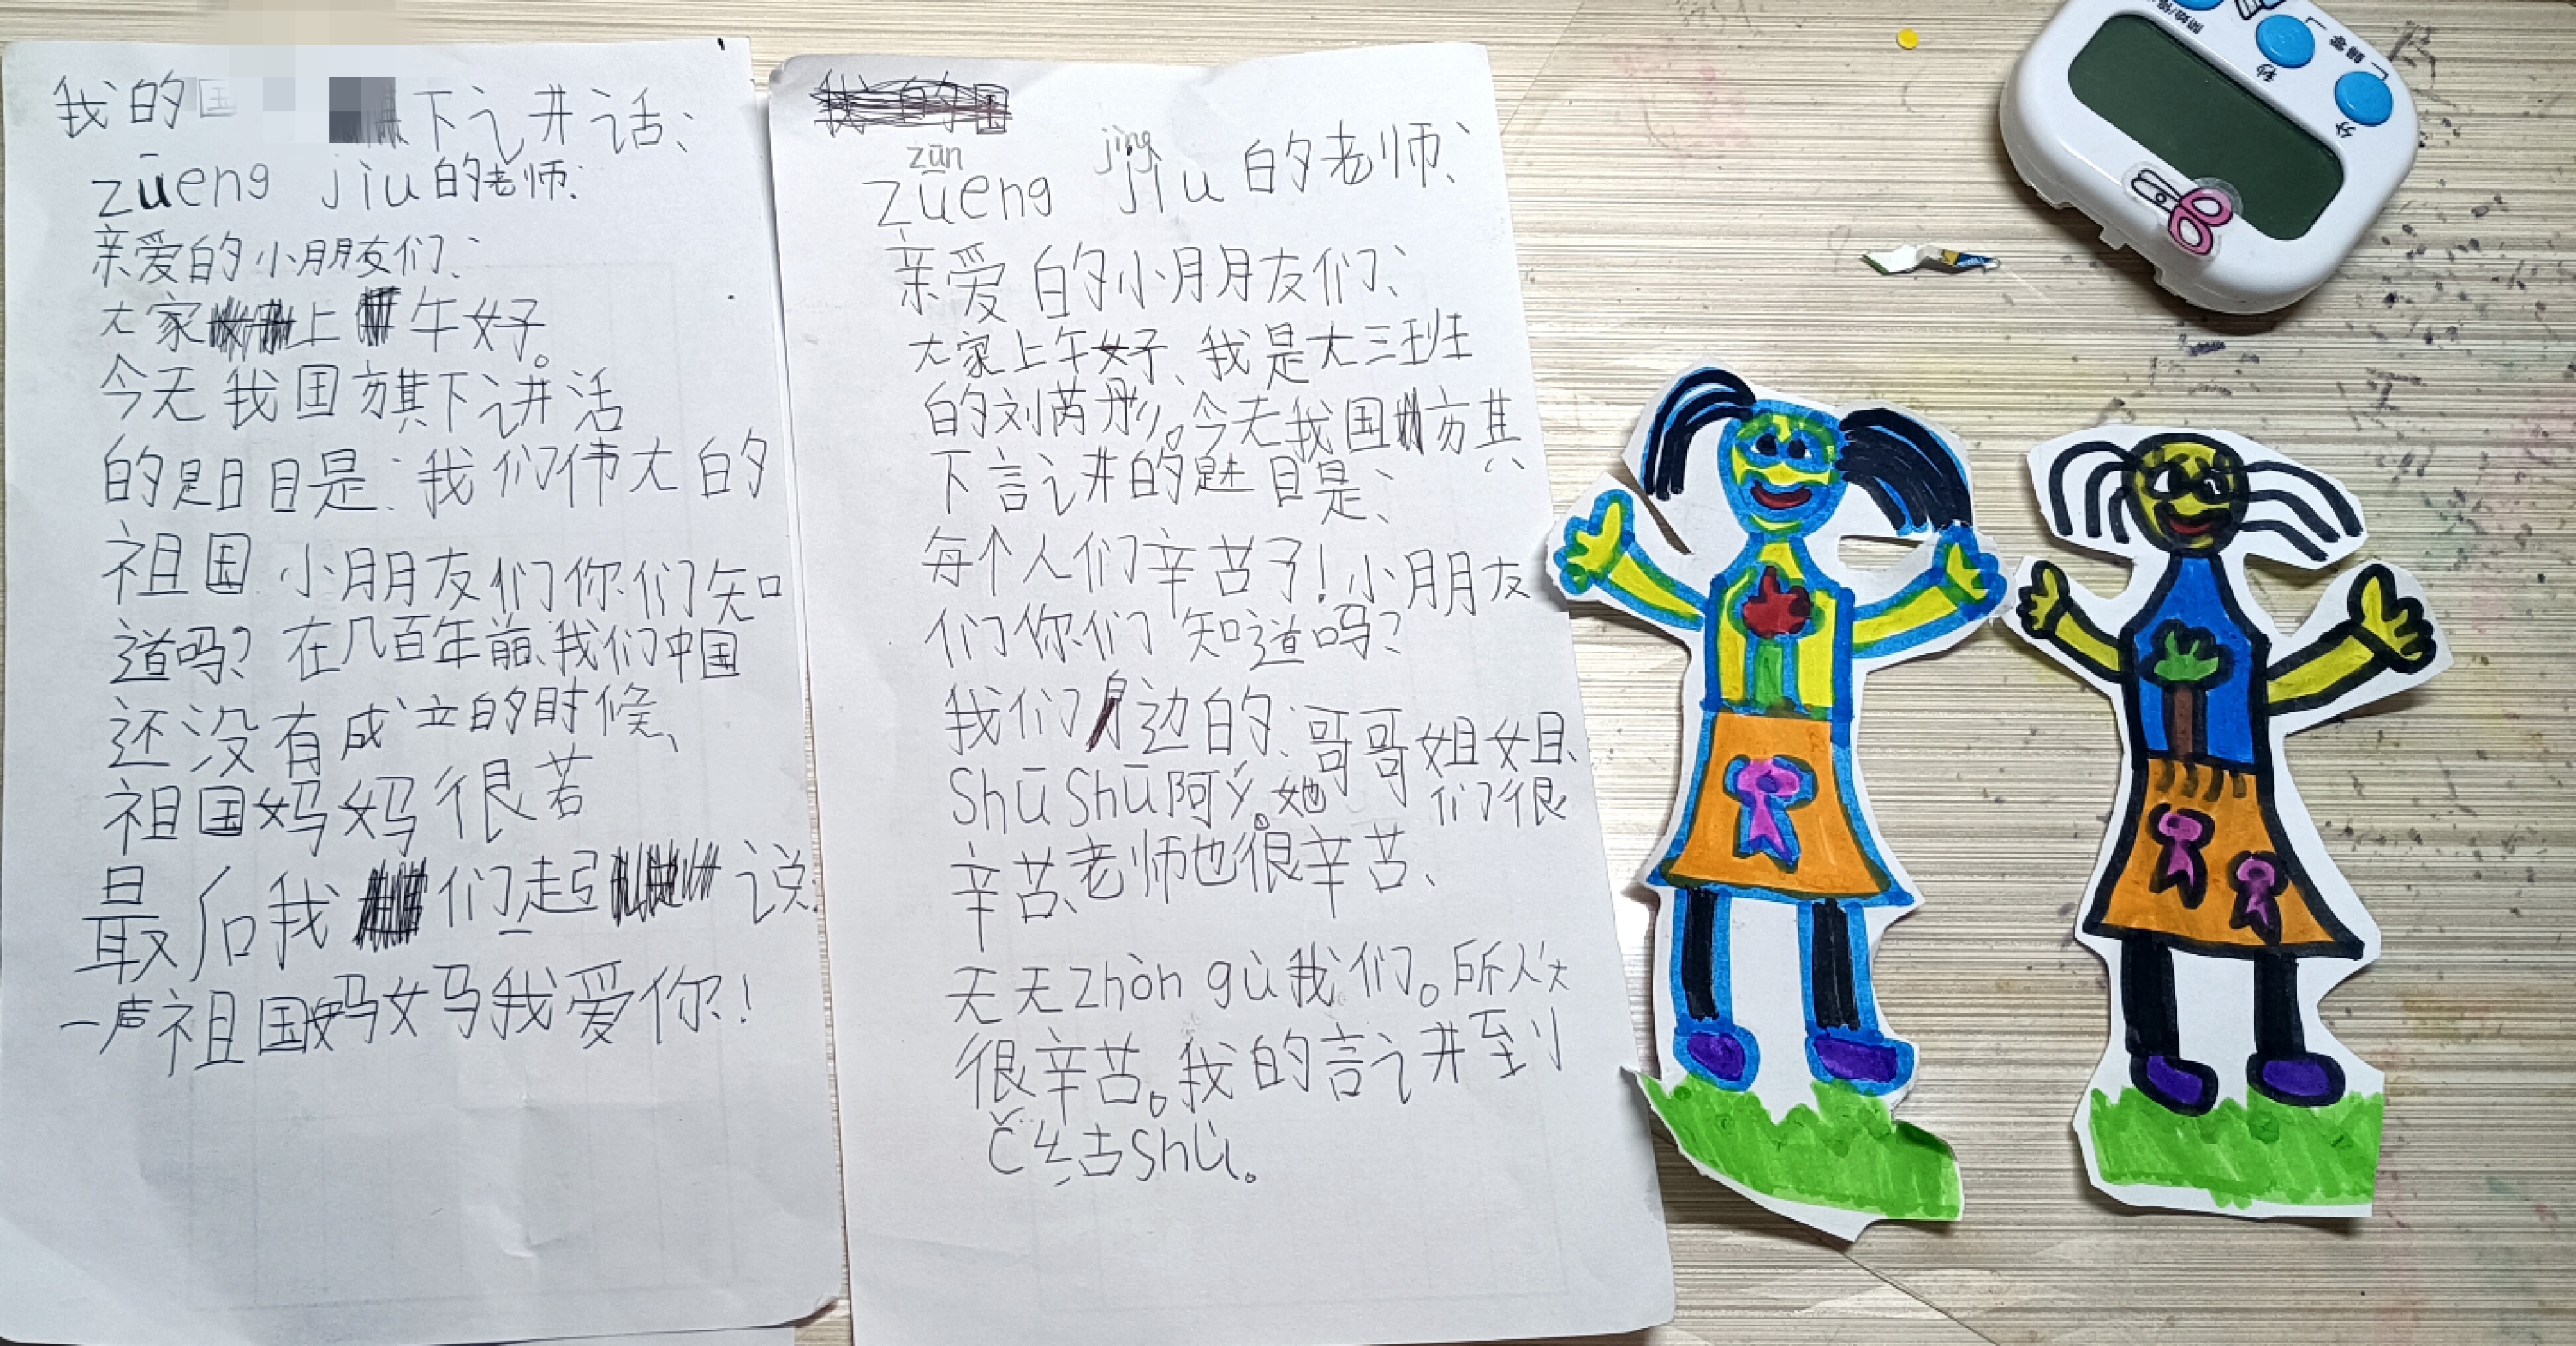 我的国下讲话、
zūeng jiu的老师:
亲爱的小朋友们:
大家上午好。
今天我国旗下讲活
的题目是:我们伟大的
祖国 小朋友们你们知
道吗?在几百年前、我们中国
还没有成立的时候、
祖国妈妈很苦
最后我们一起说:
一声祖国妈妈我爱你!
我的国
zūn jìng
zūeng jiu 的老师、
亲爱的小朋友们、
大家上午好、我是大三班
的刘芮彤。今天我国旗
下讲的题目是、
每个人们辛苦了!小朋友
们你们知道吗?
我们身边的:哥哥姐姐、
Shū Shū阿yí。她们很
辛苦、老师也很辛苦、
天天zhòn gù我们。所以
很辛苦。我的讲到
shù。
分
秒